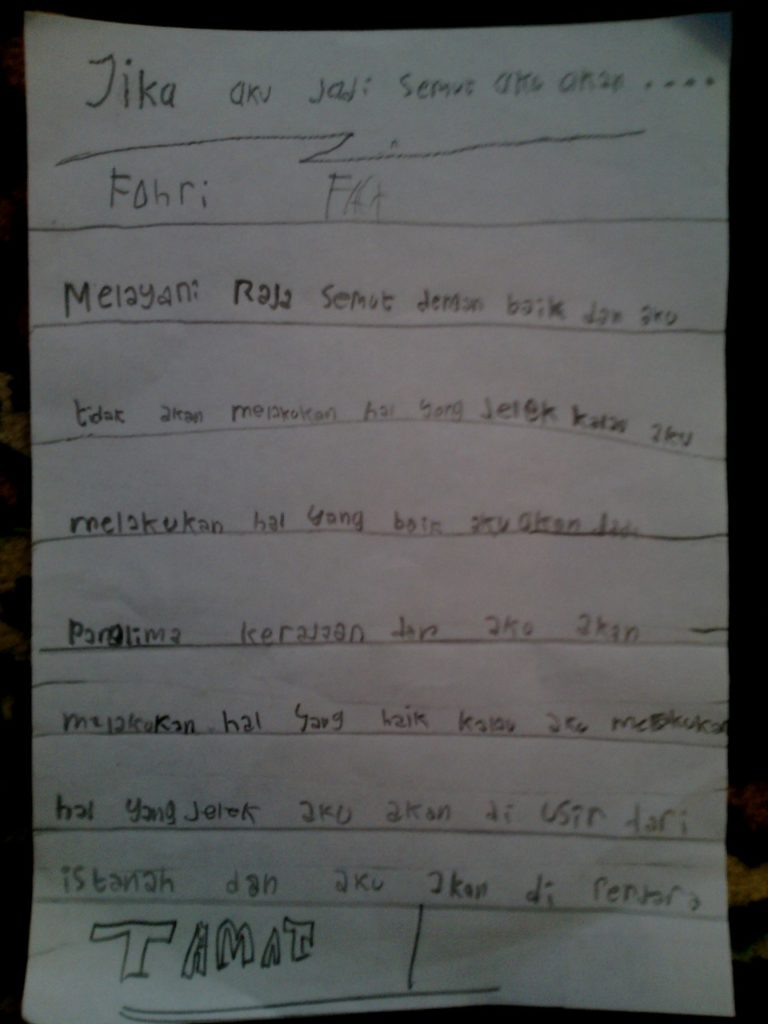 Jika aku jadi semut aku akan ....
Fahri
Melayani Raja semut deman baik dan aku
tidak akan melakukan hal yang Jelek kalau aku
melakukan hal yang baik aku akan
Panglima kerajaan dan aku akan
melakukan hal yang baik kalau aku melakukan
hal yang Jelek aku akan di usir dari
istanah dan aku akan di
TAMAT